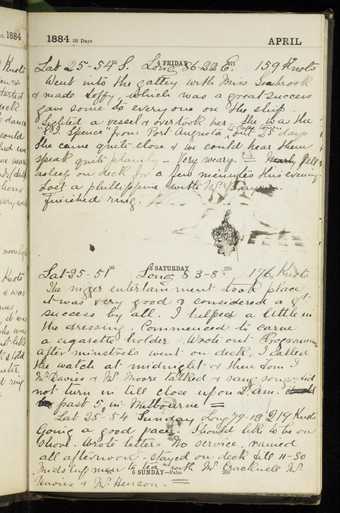 1884 30 Days APRIL
Lat 25-54 S. Long 86-22 E. 159 Knots
4 FRIDAY
Went into the galley with Miss
& made toffy which was a great success
gave some to every one on the ship
Sighted a vessel & overtook her. She was the
Spence" from Port Augusta out 25 days
She came quite close & we could hear them
speak quite plainly - Very warm = Fell
asleep on deck for a few minutes this evening
Lost a phillippine with Mr
finished ring.
5 SATURDAY
Lat 25-51 Long 83-8 176 Knots
The nigger entertainment took place
it was very good & considered a gt
success by all. I helped a little in
the dressing. Commenced to carve
a cigarette holder. Wrote out Programme
after minstrels went on deck, I called
the watch at midnight & then Tom &
Mr Davies & Mr Moore talked & sang songs did
not turn in till close upon 3 am.
past 5 in Melbourne =
Lat 25-54 Sunday Long 79-18 219 Knots
Going a good pace. Should like to be on
shore. Wrote letters No service, rained
all afternoon - stayed on deck till 11-30
6 SUNDAY
with Mr Bracknell Mr
Davies & Mr Henson. =